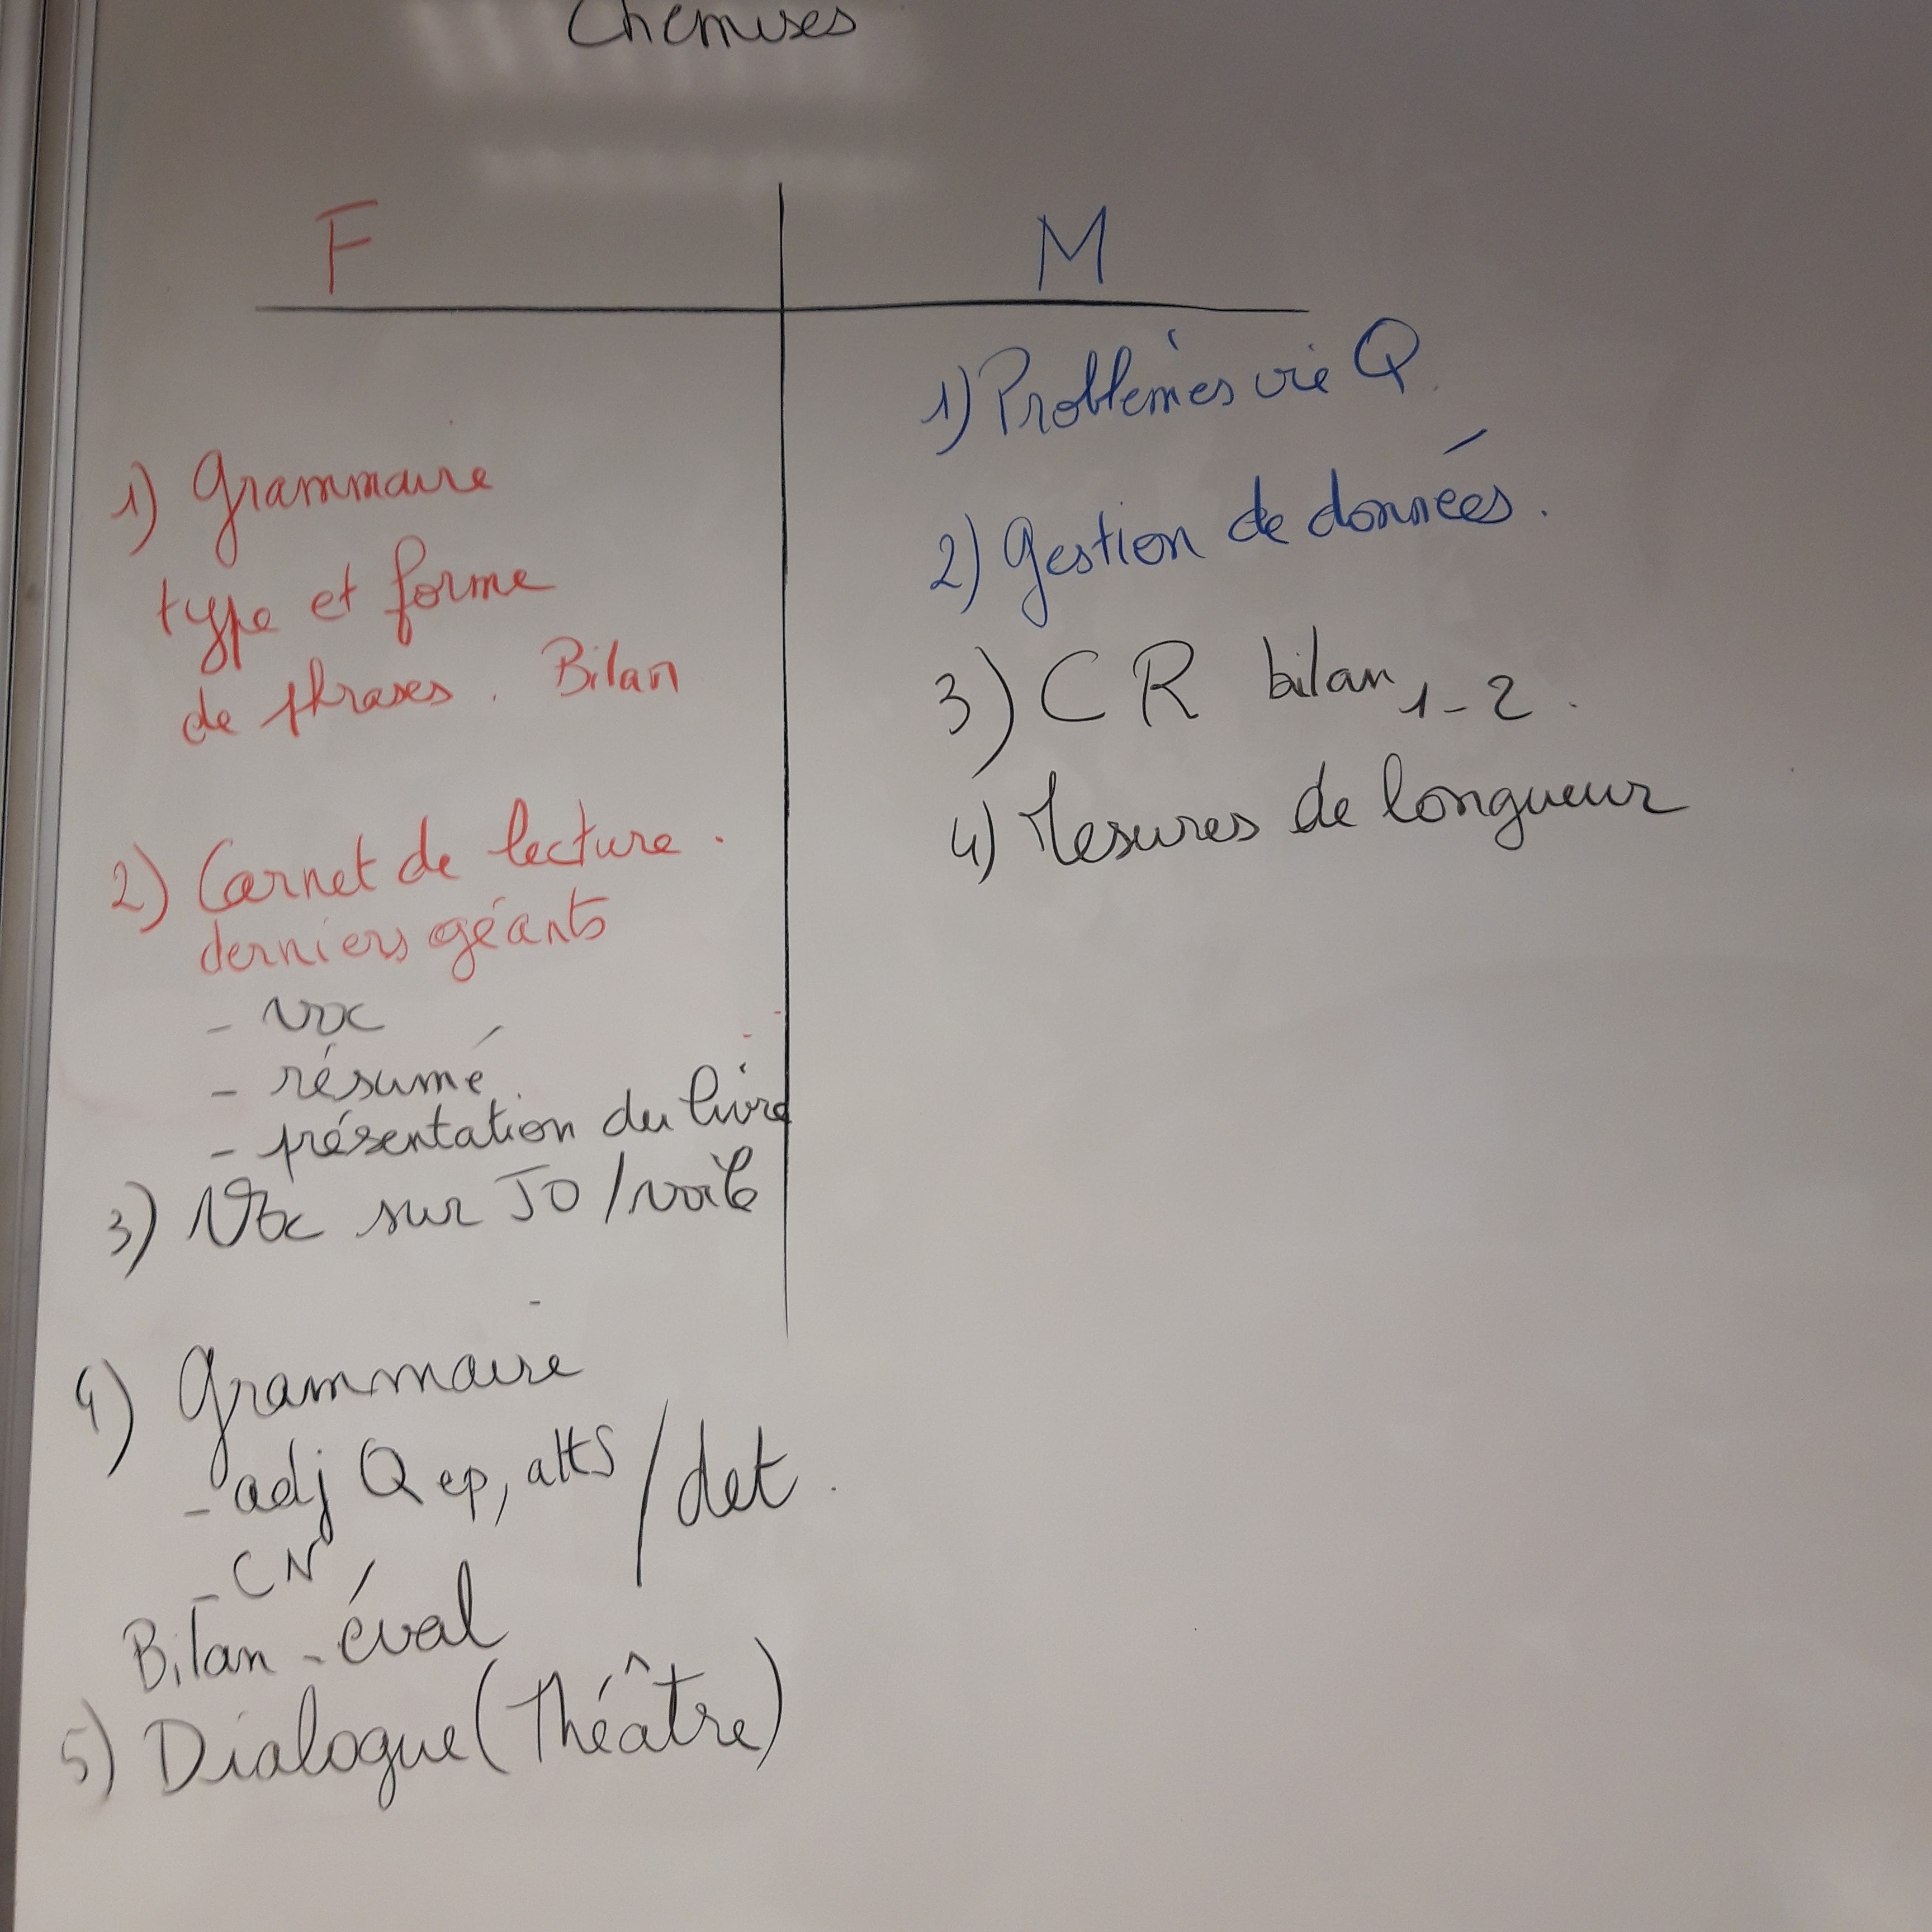 Chemises
F
M
1) Grammaire
type et forme
de phrases. Bilan
2) Carnet de lecture.
derniers géants
- voc
- résumé
- présentation du livre
3) Voc sur JO / voile
4) Grammaire
- adj Q ep, atts / det.
- CN
Bilan - éval
5) Dialogue (Théâtre)
1) Problèmes vie Q.
2) Gestion de données.
3) CR bilan 1-2.
4) Mesures de longueur